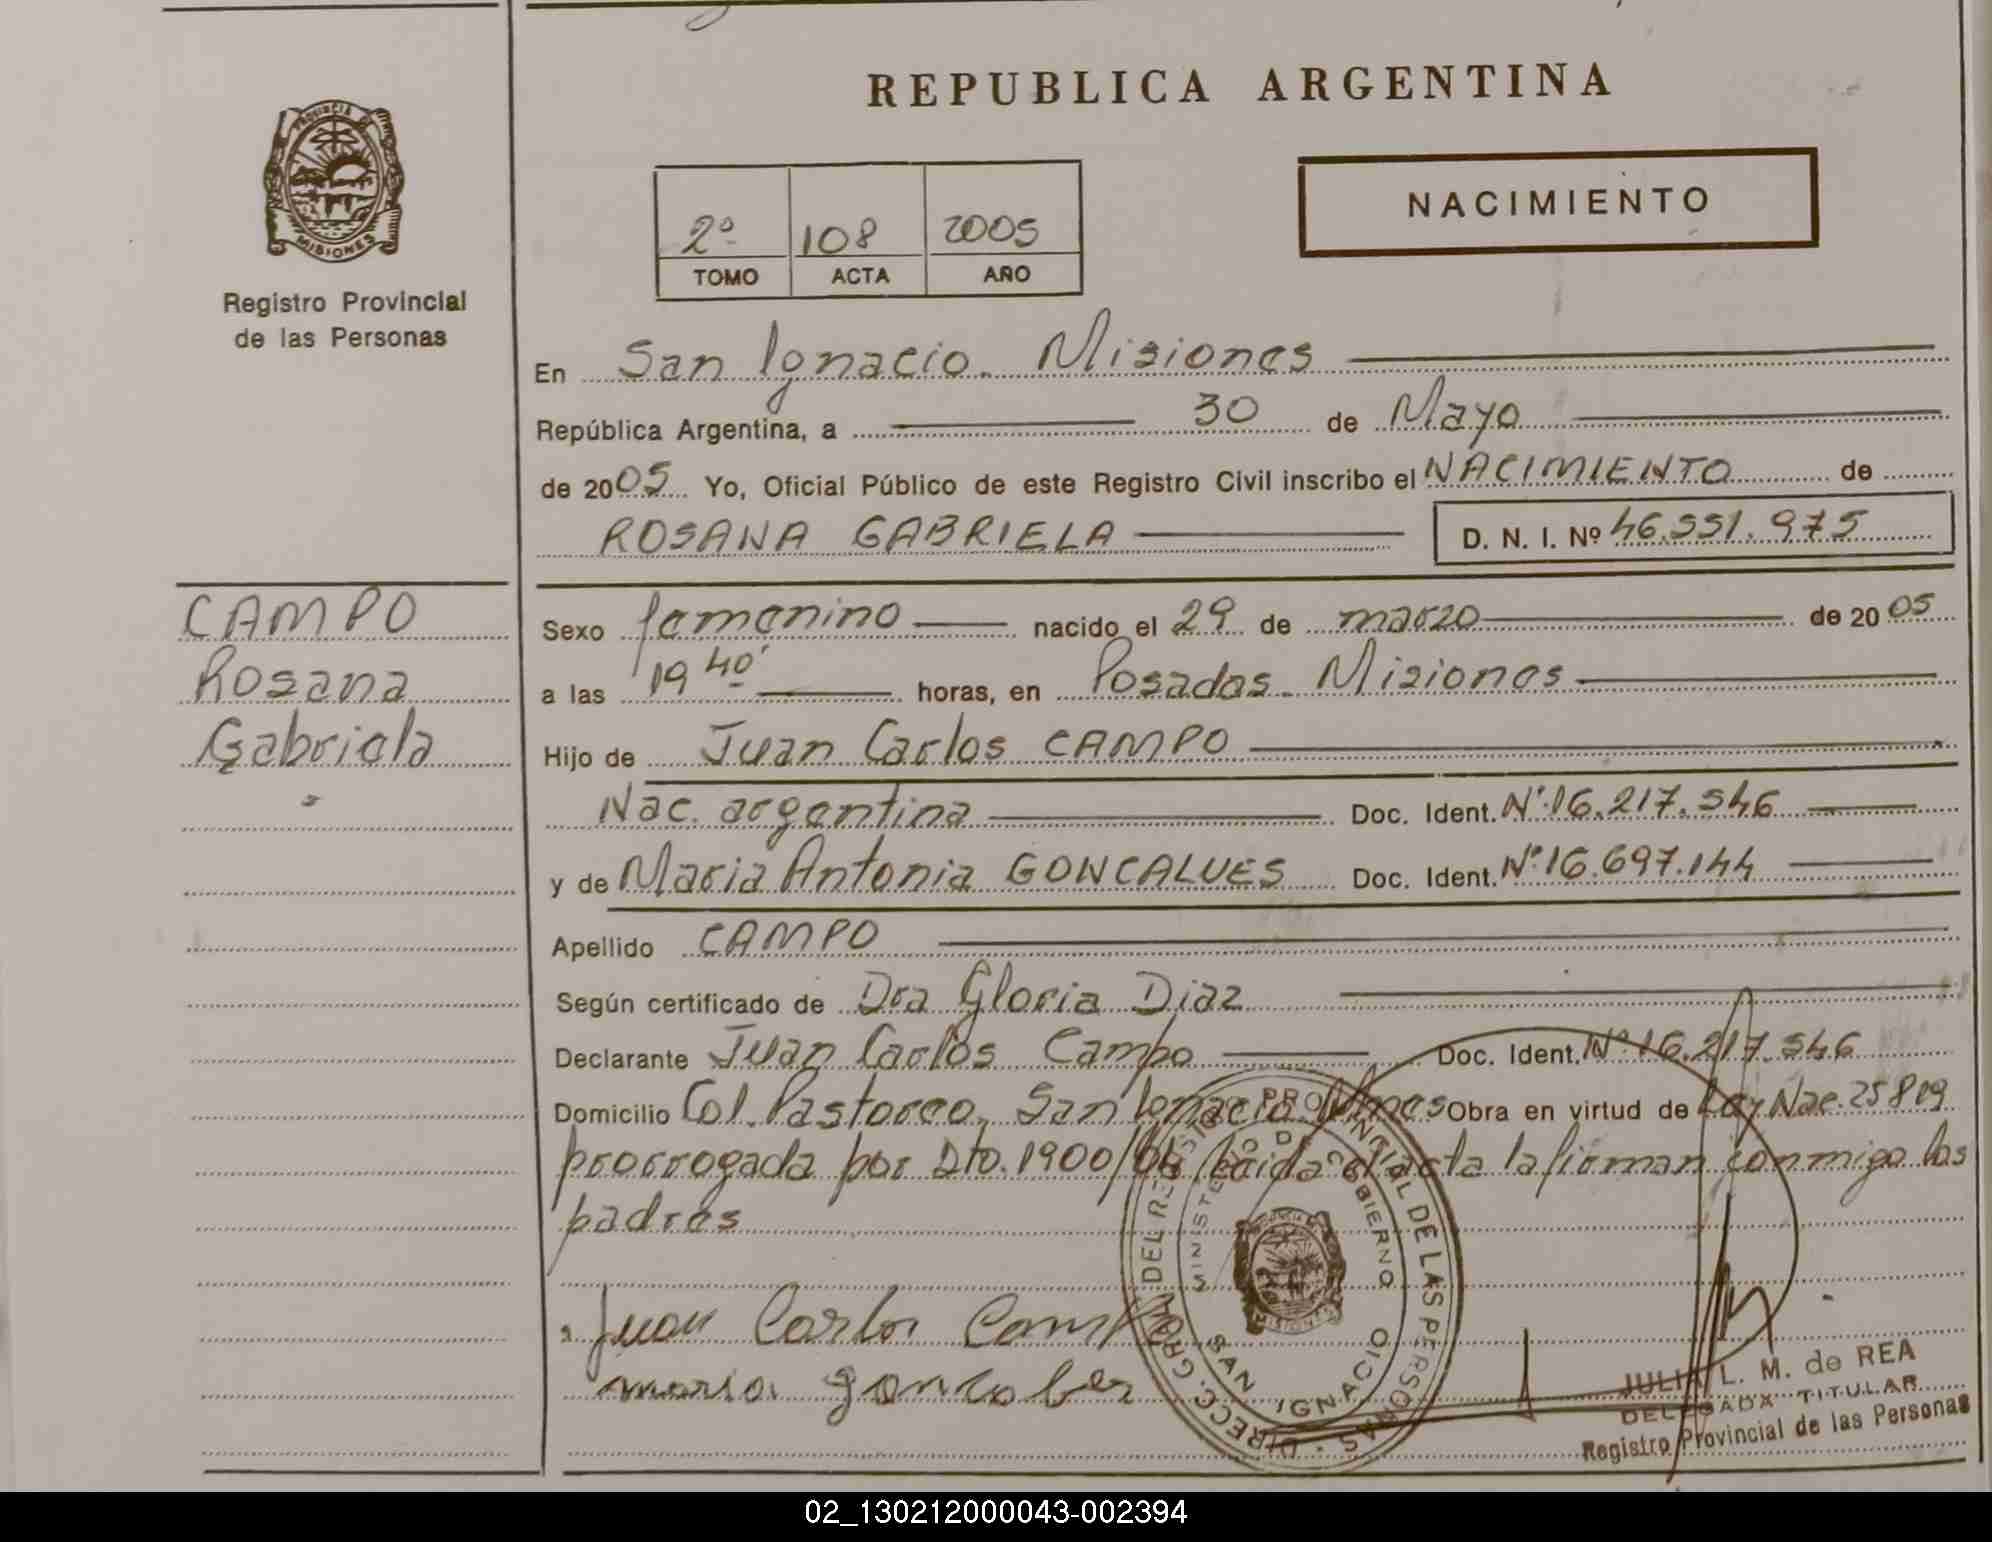 REPUBLICA ARGENTINA
PROVINCIA DE
MISIONES
Registro Provincial
de las Personas
NACIMIENTO
2º 108 2005
TOMO ACTA AÑO
En San Ignacio. Misiones
República Argentina, a 30 de Mayo
de 2005 Yo, Oficial Público de este Registro Civil inscribo el NACIMIENTO de
ROSANA GABRIELA D. N. I. Nº 46.551.975
CAMPO
Rosana
Gabriela
Sexo femenino nacido el 29 de marzo de 2005
a las 19 40' horas, en Posadas. Misiones
Hijo de Juan Carlos CAMPO
Nac. argentina Doc. Ident. Nº 16.217.546
y de Maria Antonia GONCALVES Doc. Ident. Nº 16.697.144
Apellido CAMPO
Según certificado de Dra Gloria Diaz
Declarante Juan Carlos Campo Doc. Ident. Nº 16.217.546
Domicilio Col. Pastoreo, San Ignacio Mnes Obra en virtud de Ley Nac. 25819
prorrogada por Dto. 1900/04 leida el acta la firman conmigo los
padres
Juan Carlos Campo
maria goncalves
DIRECC. GRAL. DEL REGISTRO PROVINCIAL DE LAS PERSONAS
MINISTERIO DE GOBIERNO
SAN IGNACIO
JULIA L. M. de REA
DELEGADA TITULAR
Registro Provincial de las Personas
02_130212000043-002394